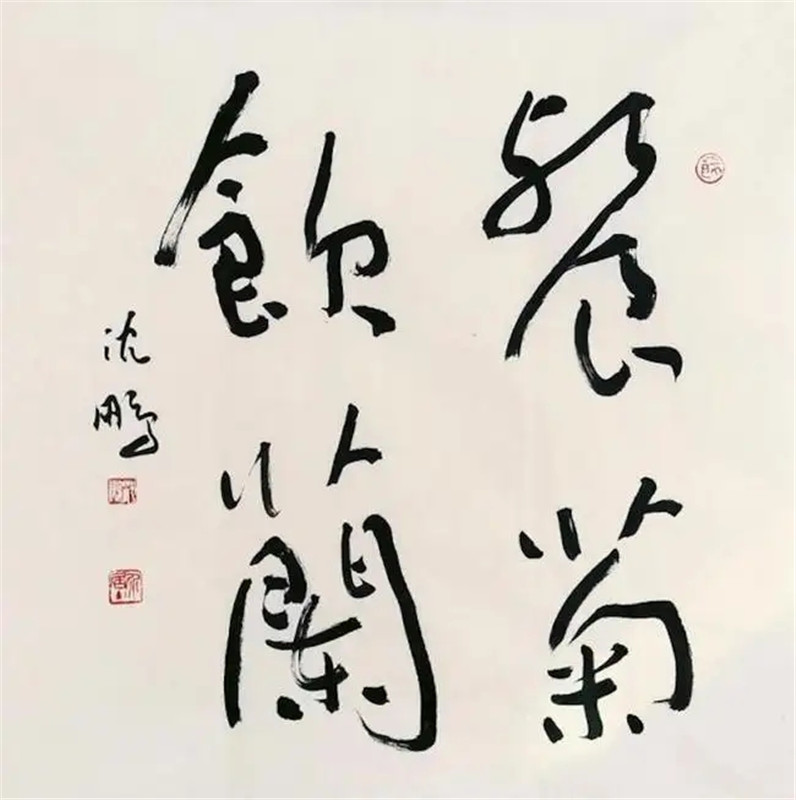 餐菊
飲蘭
沈鵬